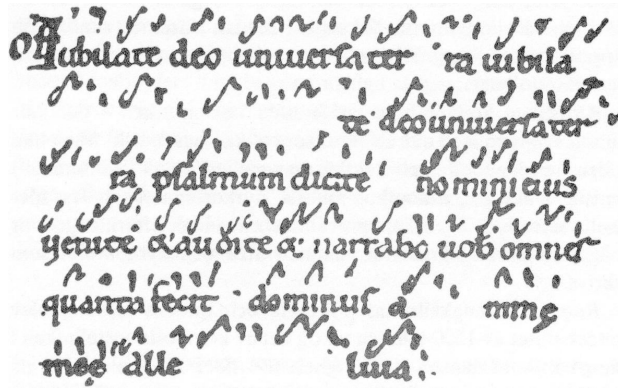 Off Iubilate deo universa ter ra iubila
te deo universa ter
ra psalmum dicite nomini eius
venite & audite & narrabo vob omnes
quanta fecit dominus anime
meę alle luia.